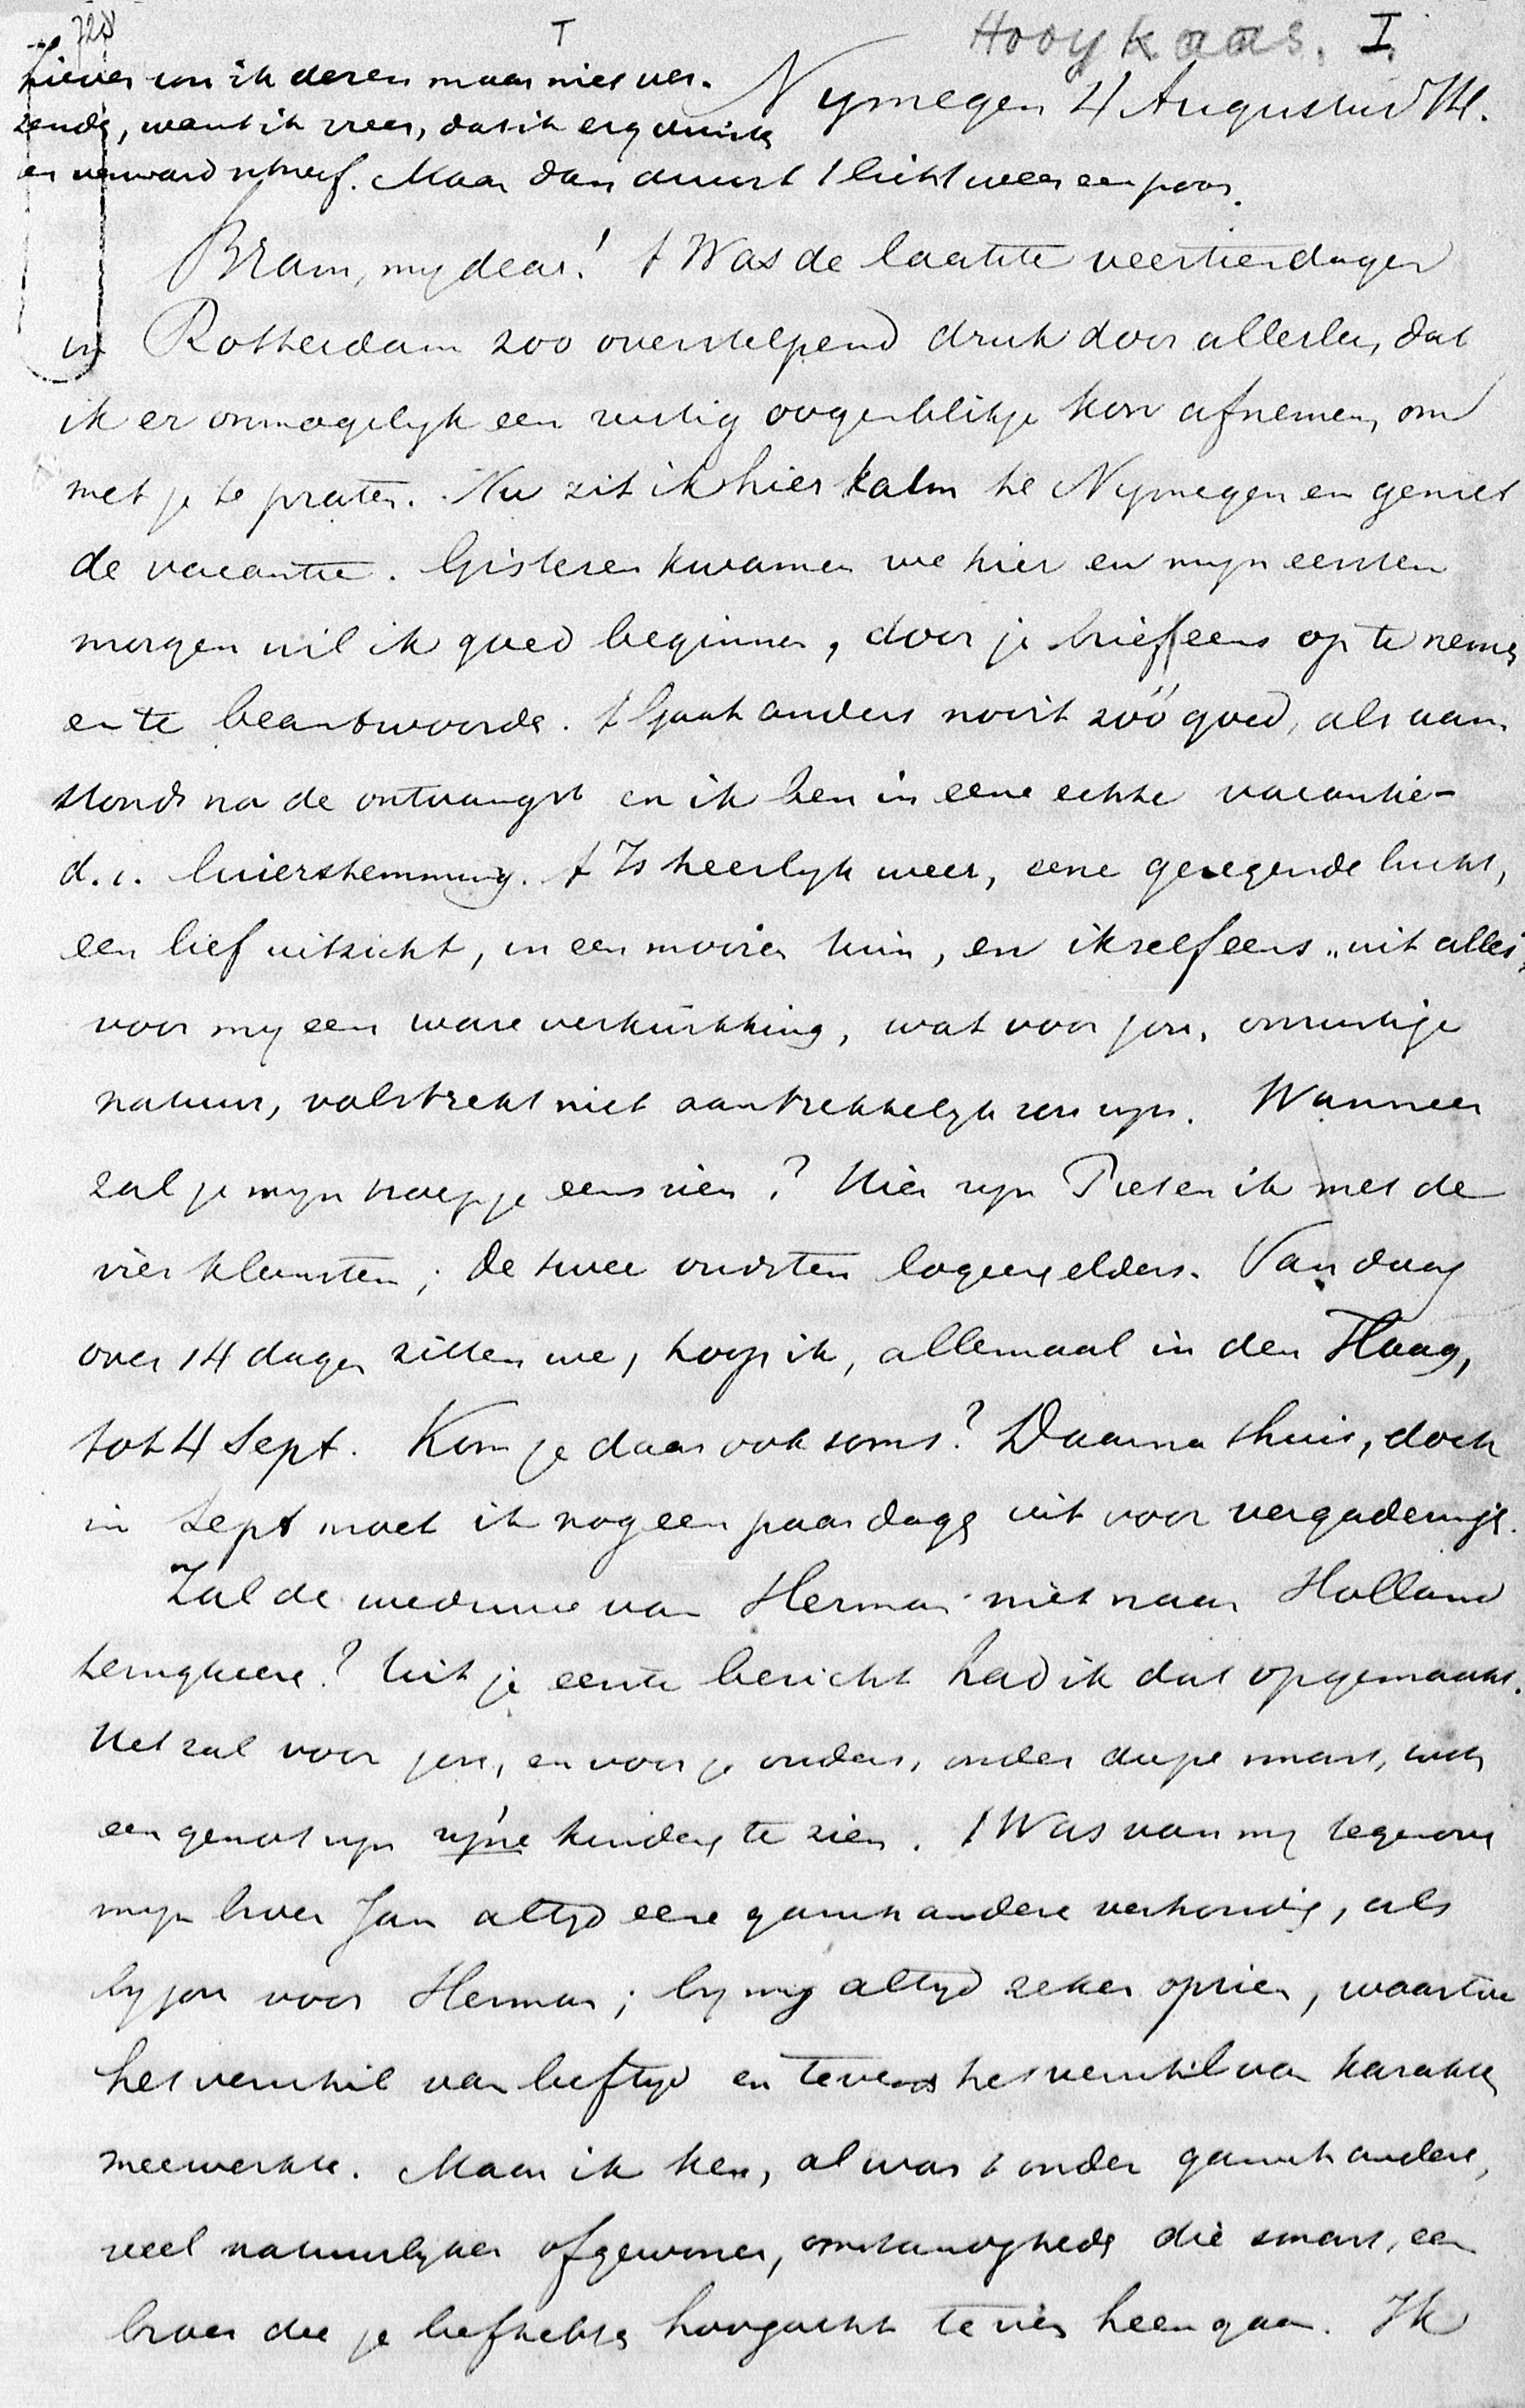 728
T
Hooykaas. I.
Liever wou ik dezen maar niet ver-
zende, want ik vrees, dat ik erg
en verward schreef. Maar dan duurt 't licht weer een poos.
Nymegen 4 Augustus 74.
Bram, my dear! 't Was de laatste veertien dagen
in Rotterdam zoo overstelpend druk door allerlei, dat
ik er onmogelyk een rustig oogenblikje kon afnemen, om
met je te praten. Nu zit ik hier kalm te Nymegen en geniet
de vacantie. Gisteren kwamen we hier en myn eersten
morgen wil ik goed beginnen, door je brief eens op te nemen
en te beantwoorden. 't Gaat anders nooit zóó goed, als aan-
stonds na de ontvangst en ik ben in eene echte vacantie-
d. i. luierstemming. 't Is heerlyk weer, eene geregende lucht,
een lief uitzicht, in een mooien tuin, en ikzelf eens „uit alles",
voor my een ware verkwikking, wat voor jou, onrustige
natuur, volstrekt niet aantrekkelyk zou zyn. Wanneer
zal je myn troepje eens zien? Hier zyn Piet en ik met de
vier kleinsten; de twee oudsten logeeren elders. Vandaag
over 14 dagen zitten we, hoop ik, allemaal in den Haag,
tot 4 Sept. Kom je daar ook soms? Daarna thuis, doch
in Sept moet ik nog een paar dagen uit voor vergaderingen.
Zal de weduwe van Herman niet naar Holland
terugkeeren? Uit je eerste bericht had ik dat opgemaakt.
Het zal voor jou, en voor je ouders, onder diepe smart, toch
een genot zyn zyne kinderen te zien. 't Was van my tegenover
myn broer Jan altyd eene gansch andere verhouding, als
by jou voor Herman; by my altyd zeker opzien, waartoe
het verschil van leeftyd en tevens het verschil van karakter
meewerkte. Maar ik ken, al was 't onder gansch andere,
veel natuurlyker of gewoner, omstandigheden die smart, een
broer die je liefhebt en hoogacht te zien heengaan. Ik